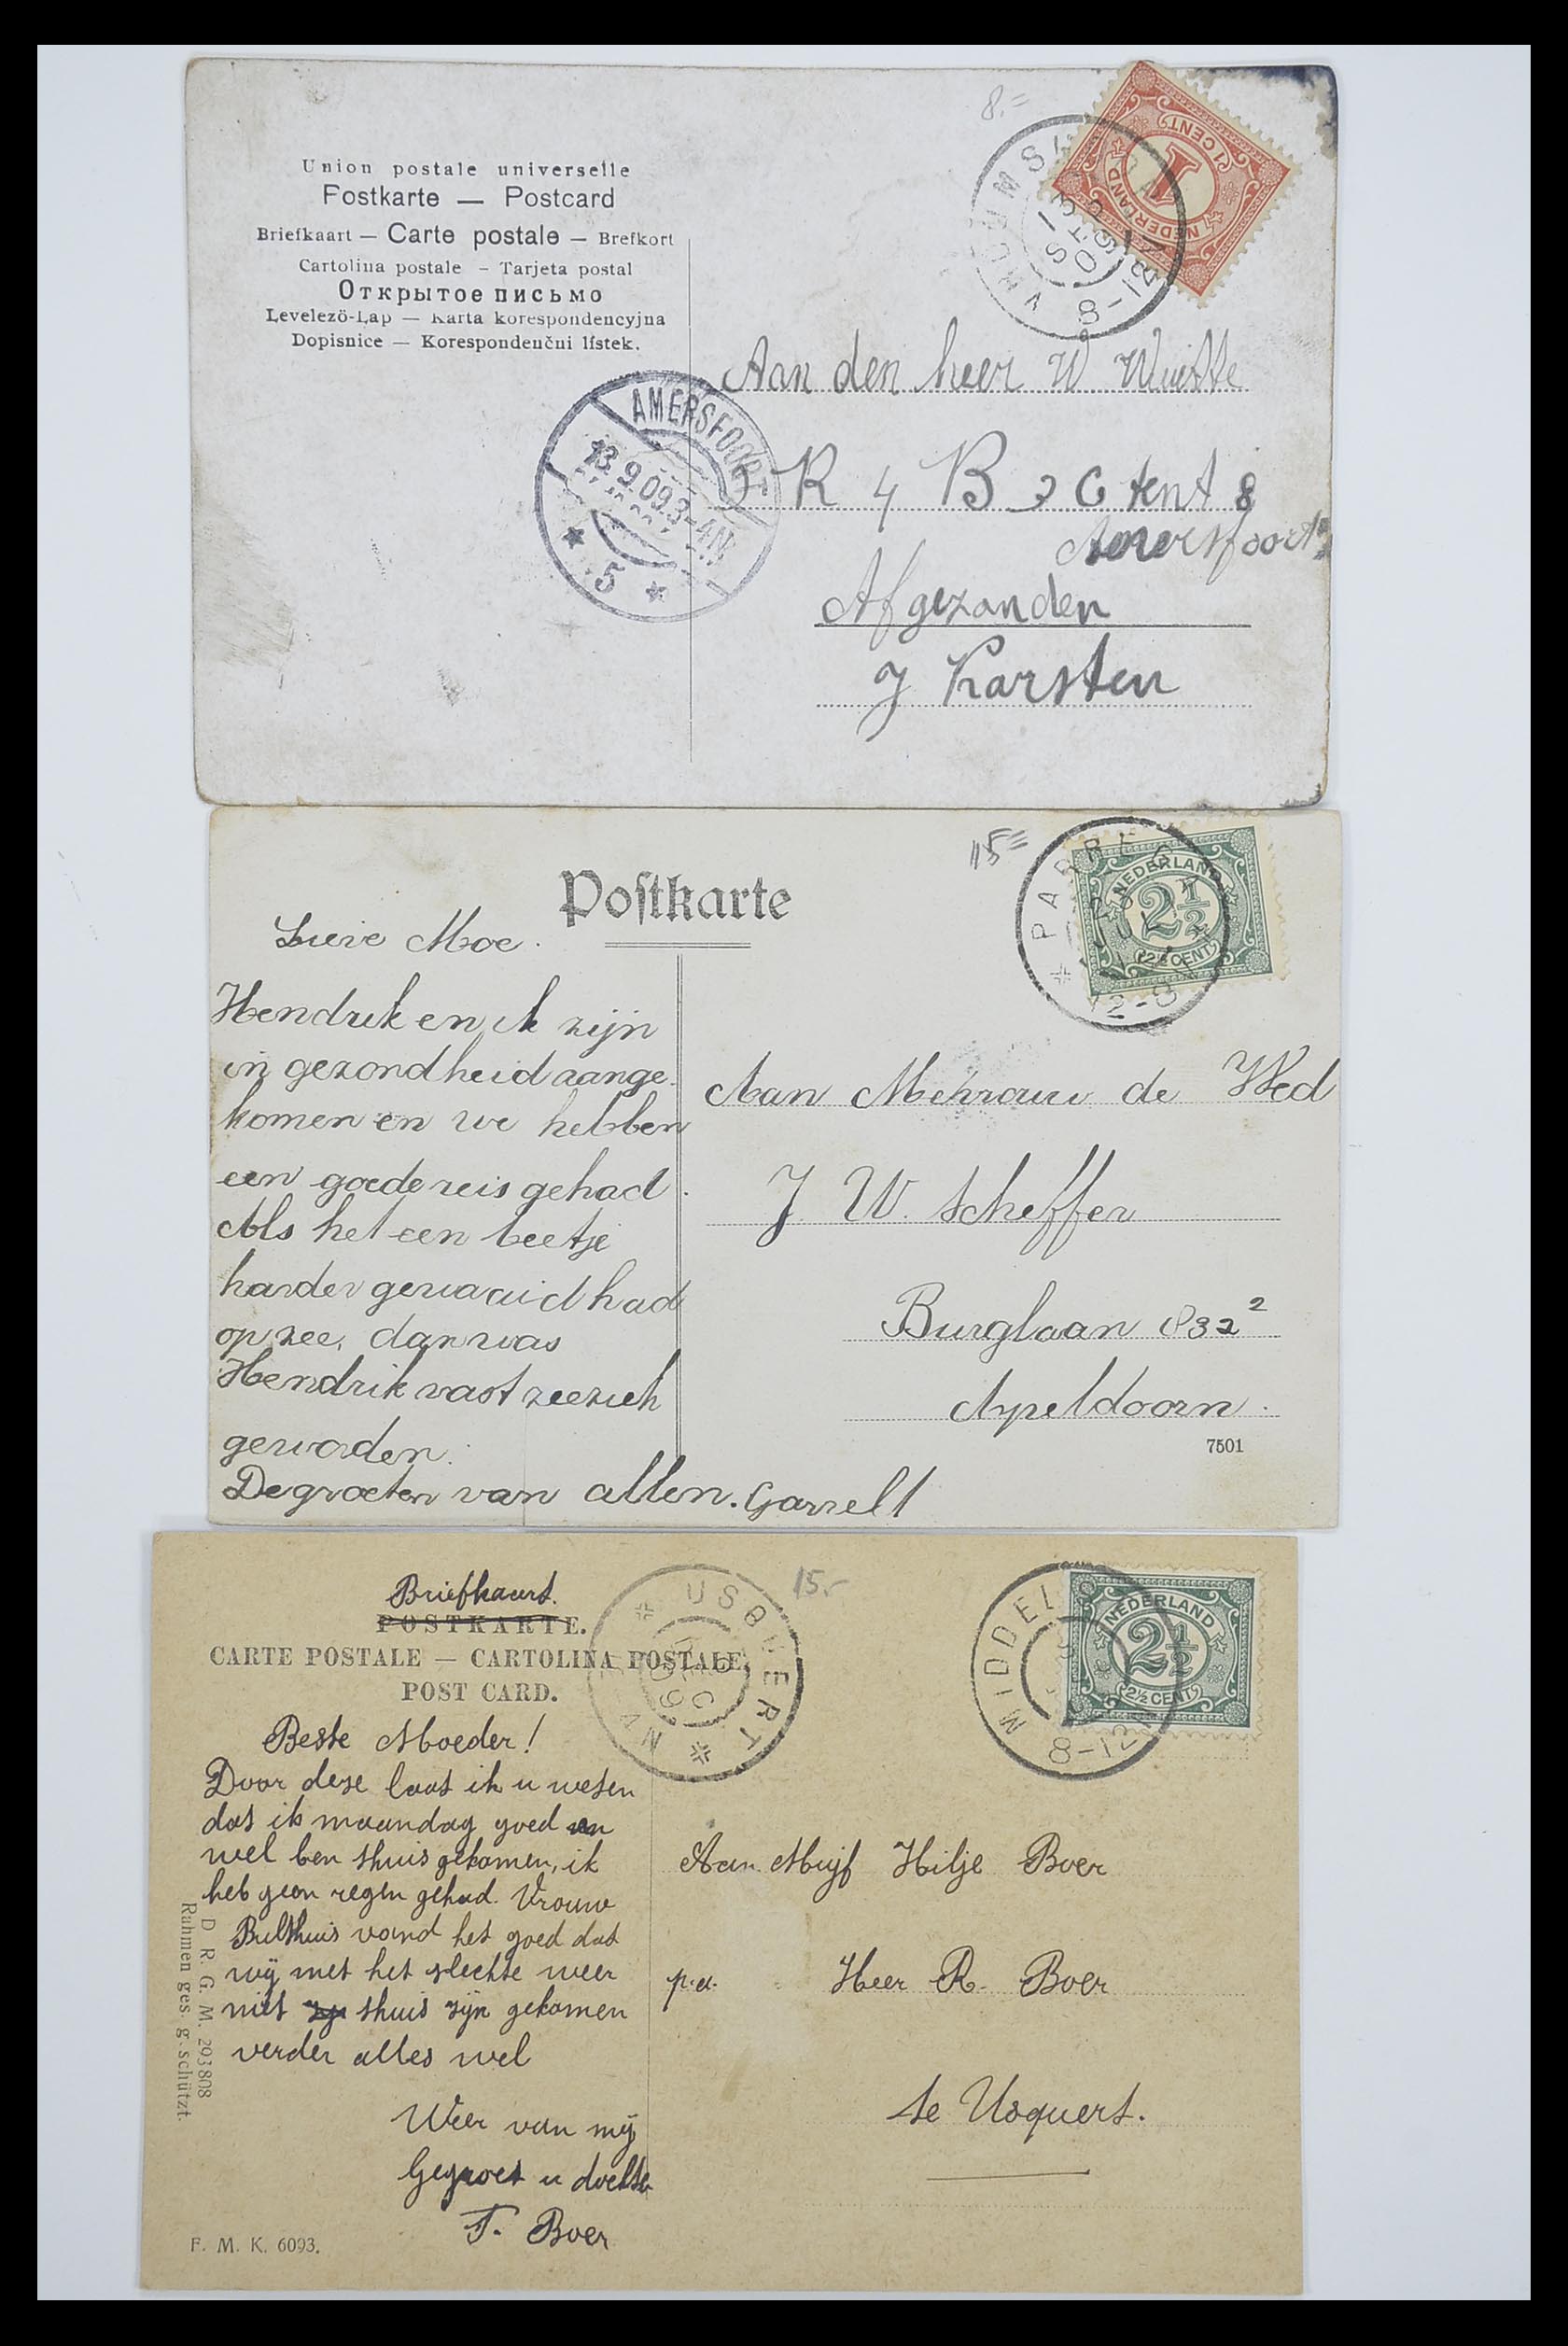 Union postale universelle
Postkarte — Postcard
Briefkaart — Carte postale — Brefkort
Cartolina postale – Tarjeta postal
Открытое письмо
Levelezö-Lap — Karta korespondencyjna
Dopisnice — Korespondenčni lístek.
8.=
NEDERLAND
1
1 CENT
8-12
AMERSFOORT
13.9.09.3-4N
5
Aan den heer W
R 4 B 2 C tent 8
Amersfoort
Afgezonden
J Karsten
Postkarte
15=
PARREGA
NEDERLAND
2½
2½ CENT
12-8
Lieve Moe.
Hendrik en ik zijn
in gezondheid aange-
komen en we hebben
een goede reis gehad.
Als het een beetje
harder gewaaid had
op zee, dan was
Hendrik vast zeeziek
geworden.
De groeten van allen. Garrelt
Aan Mevrouw de Wed
J. W. Scheffer
Burglaan 832²
Apeldoorn.
7501
Briefkaart.
POSTKARTE.
CARTE POSTALE — CARTOLINA POSTALE,
POST CARD.
15.-
USQUERT
DEC
09
MIDDELS
8-12
NEDERLAND
2½
2½ CENT
Beste Moeder!
Door deze laat ik u weten
dat ik maandag goed en
wel ben thuis gekomen, ik
heb geen regen gehad. Vrouw
Bulthuis vond het goed dat
wij met het slechte weer
niet zijn thuis zijn gekomen
verder alles wel
Weer van mij
Gegroet u dochter
T. Boer
Aan Mejf Hilje Boer
p.a. Heer R. Boer
te Usquert.
D. R. G. M. 293808
Rahmen ges. g.schützt.
F. M. K. 6093.